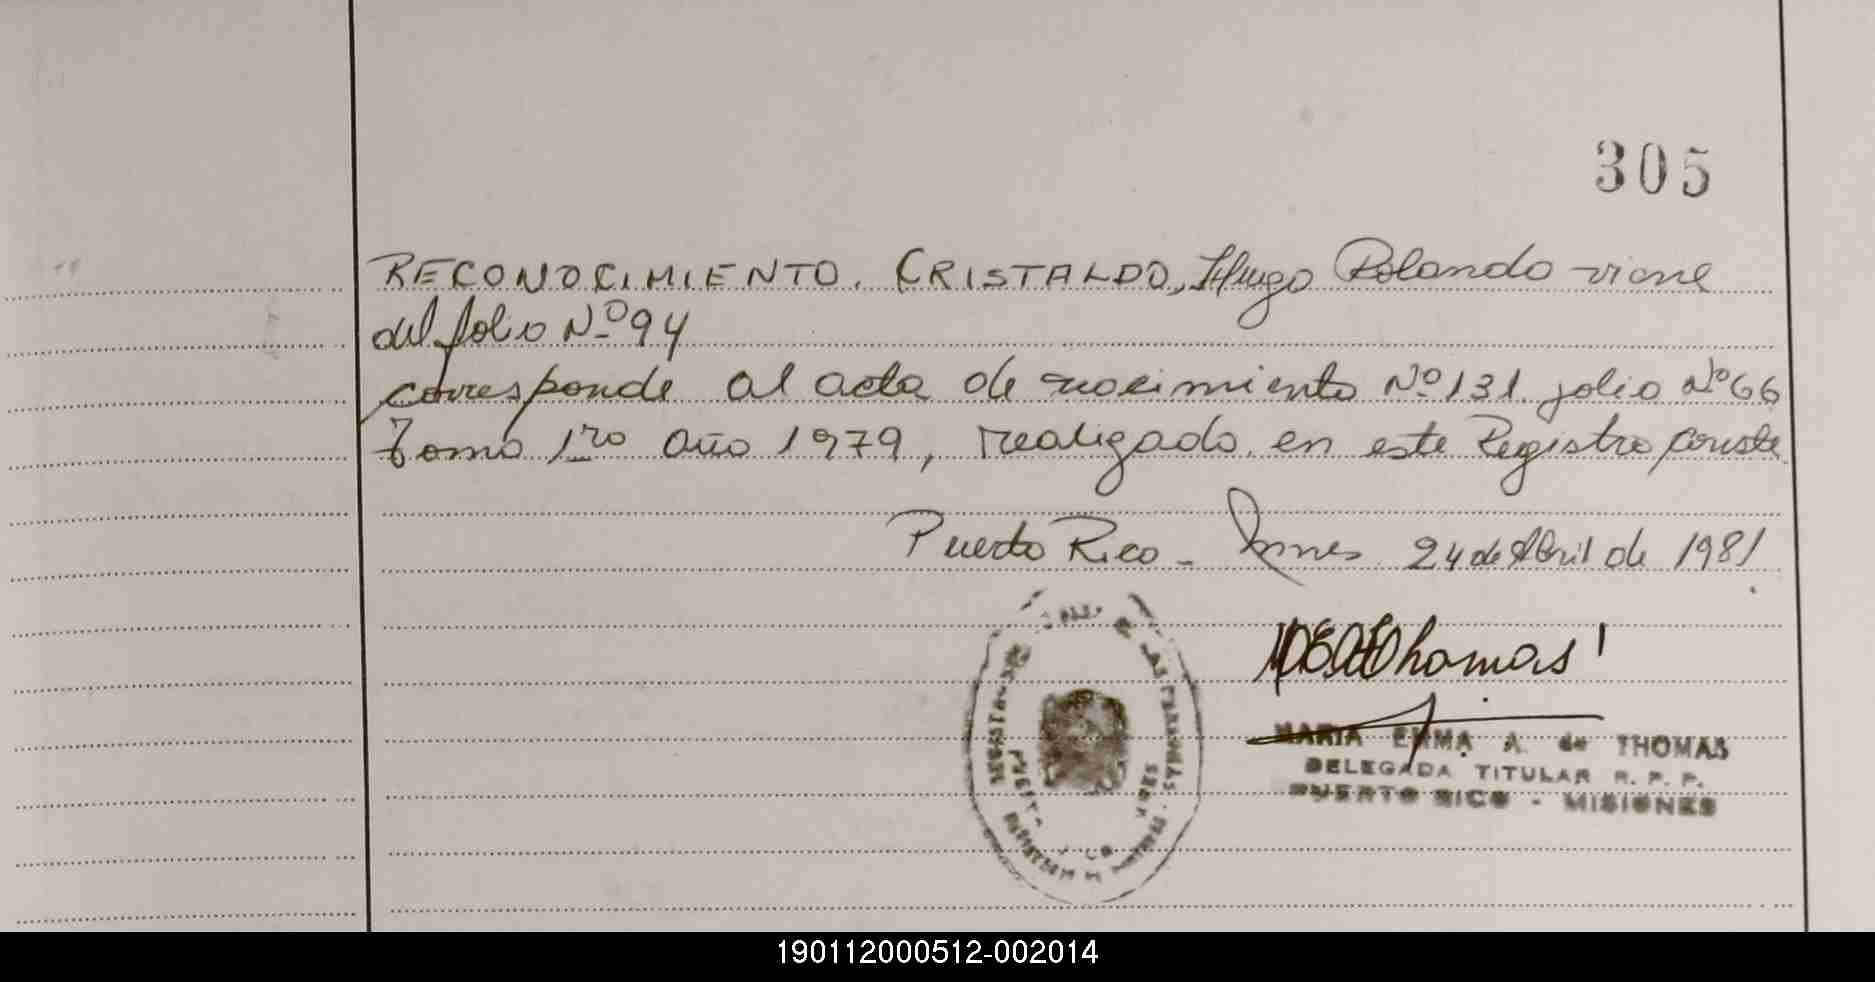 305
RECONOCIMIENTO. CRISTALDO, Hugo Rolando viene
del folio Nº 94
corresponde al acta de nacimiento Nº 131 folio Nº 66
Tomo 1ro año 1979, realizado en este Registro, conste
Puerto Rico - Mnes 24 de Abril de 1981
MARIA EMMA A. de THOMAS
DELEGADA TITULAR R. P. P.
PUERTO RICO - MISIONES
190112000512-002014